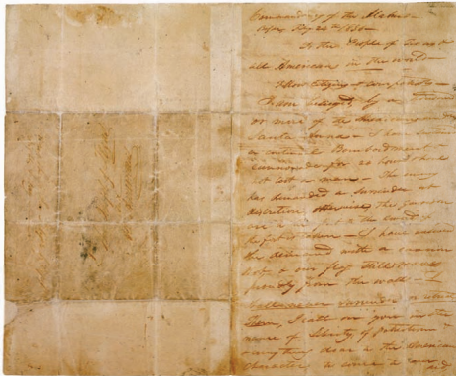 Commandancy of the Alamo—
Bejar, Fby. 24th 1836—
To the People of Texas &
all Americans in the world—
Fellow citizens & compatriots—
I am besieged, by a thousand
or more of the Mexicans under
Santa Anna— I have sustained
a continual Bombardment &
cannonade for 24 hours & have
not lost a man— The enemy
has demanded a surrender at
discretion, otherwise, the garrison
are to be put to the sword, if
the fort is taken— I have answered
the demand with a cannon
shot, & our flag still waves
proudly from the walls— I
shall never surrender or retreat
Then, I call on you in the
name of Liberty, of patriotism &
everything dear to the American
character, to come to our aid,